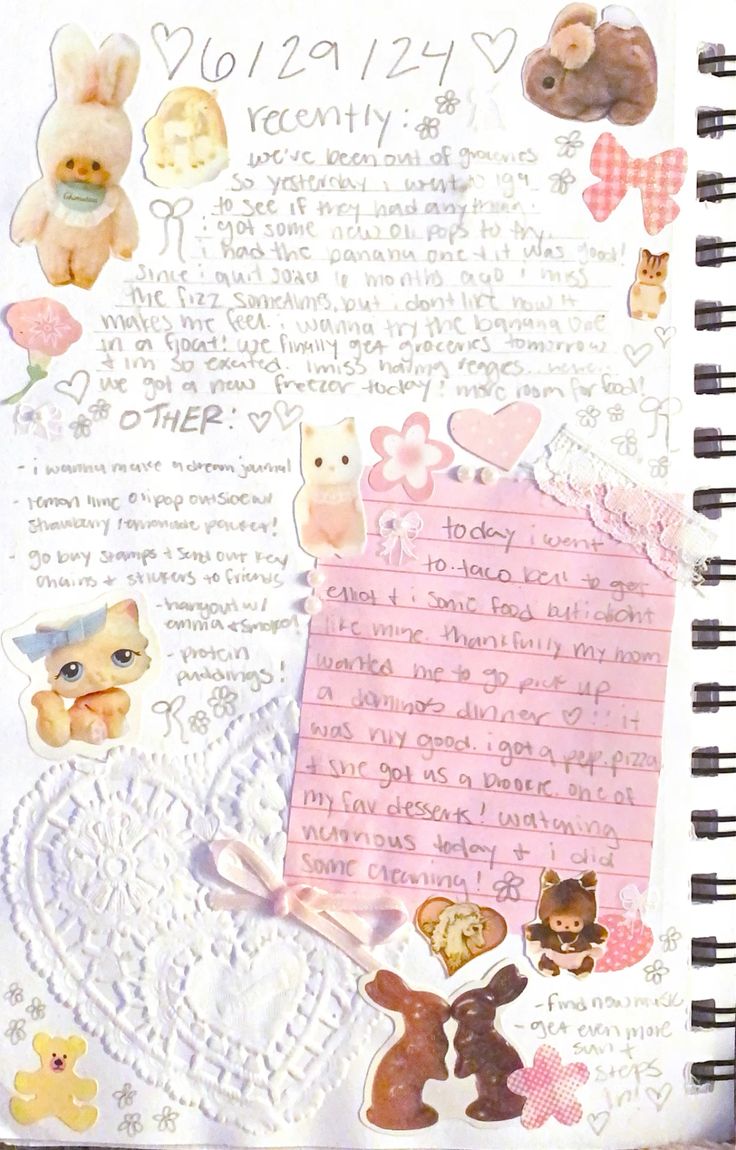 6/29/24
recently:
we've been out of groceries
so yesterday i went to iga
to see if they had anything
i got some new oli pops to try.
i had the banana one + it was good!
since i quit soda 6 months ago i miss
the fizz sometimes, but i dont like how it
makes me feel. i wanna try the banana one
in a float! we finally get groceries tomorrow
+ im so excited. i miss having
we got a new freezer today! more room for food!
OTHER:
- i wanna make a dream journal
- lemon lime olipop outside w/
strawberry lemonade packet!
- go buy stamps + send out key
chains + stickers to friends
- hangout w/
emma + smoke!
- protein
puddings!
today i went
to taco bell to get
elliot + i some food but i didnt
like mine. thankfully my mom
wanted me to go pick up
a dominos dinner !! it
was rlly good. i got a pep. pizza
+ she got us a brookie. one of
my fav desserts! watching
today + i did
some cleaning!
- find new music
- get even more
sun +
steps
in!